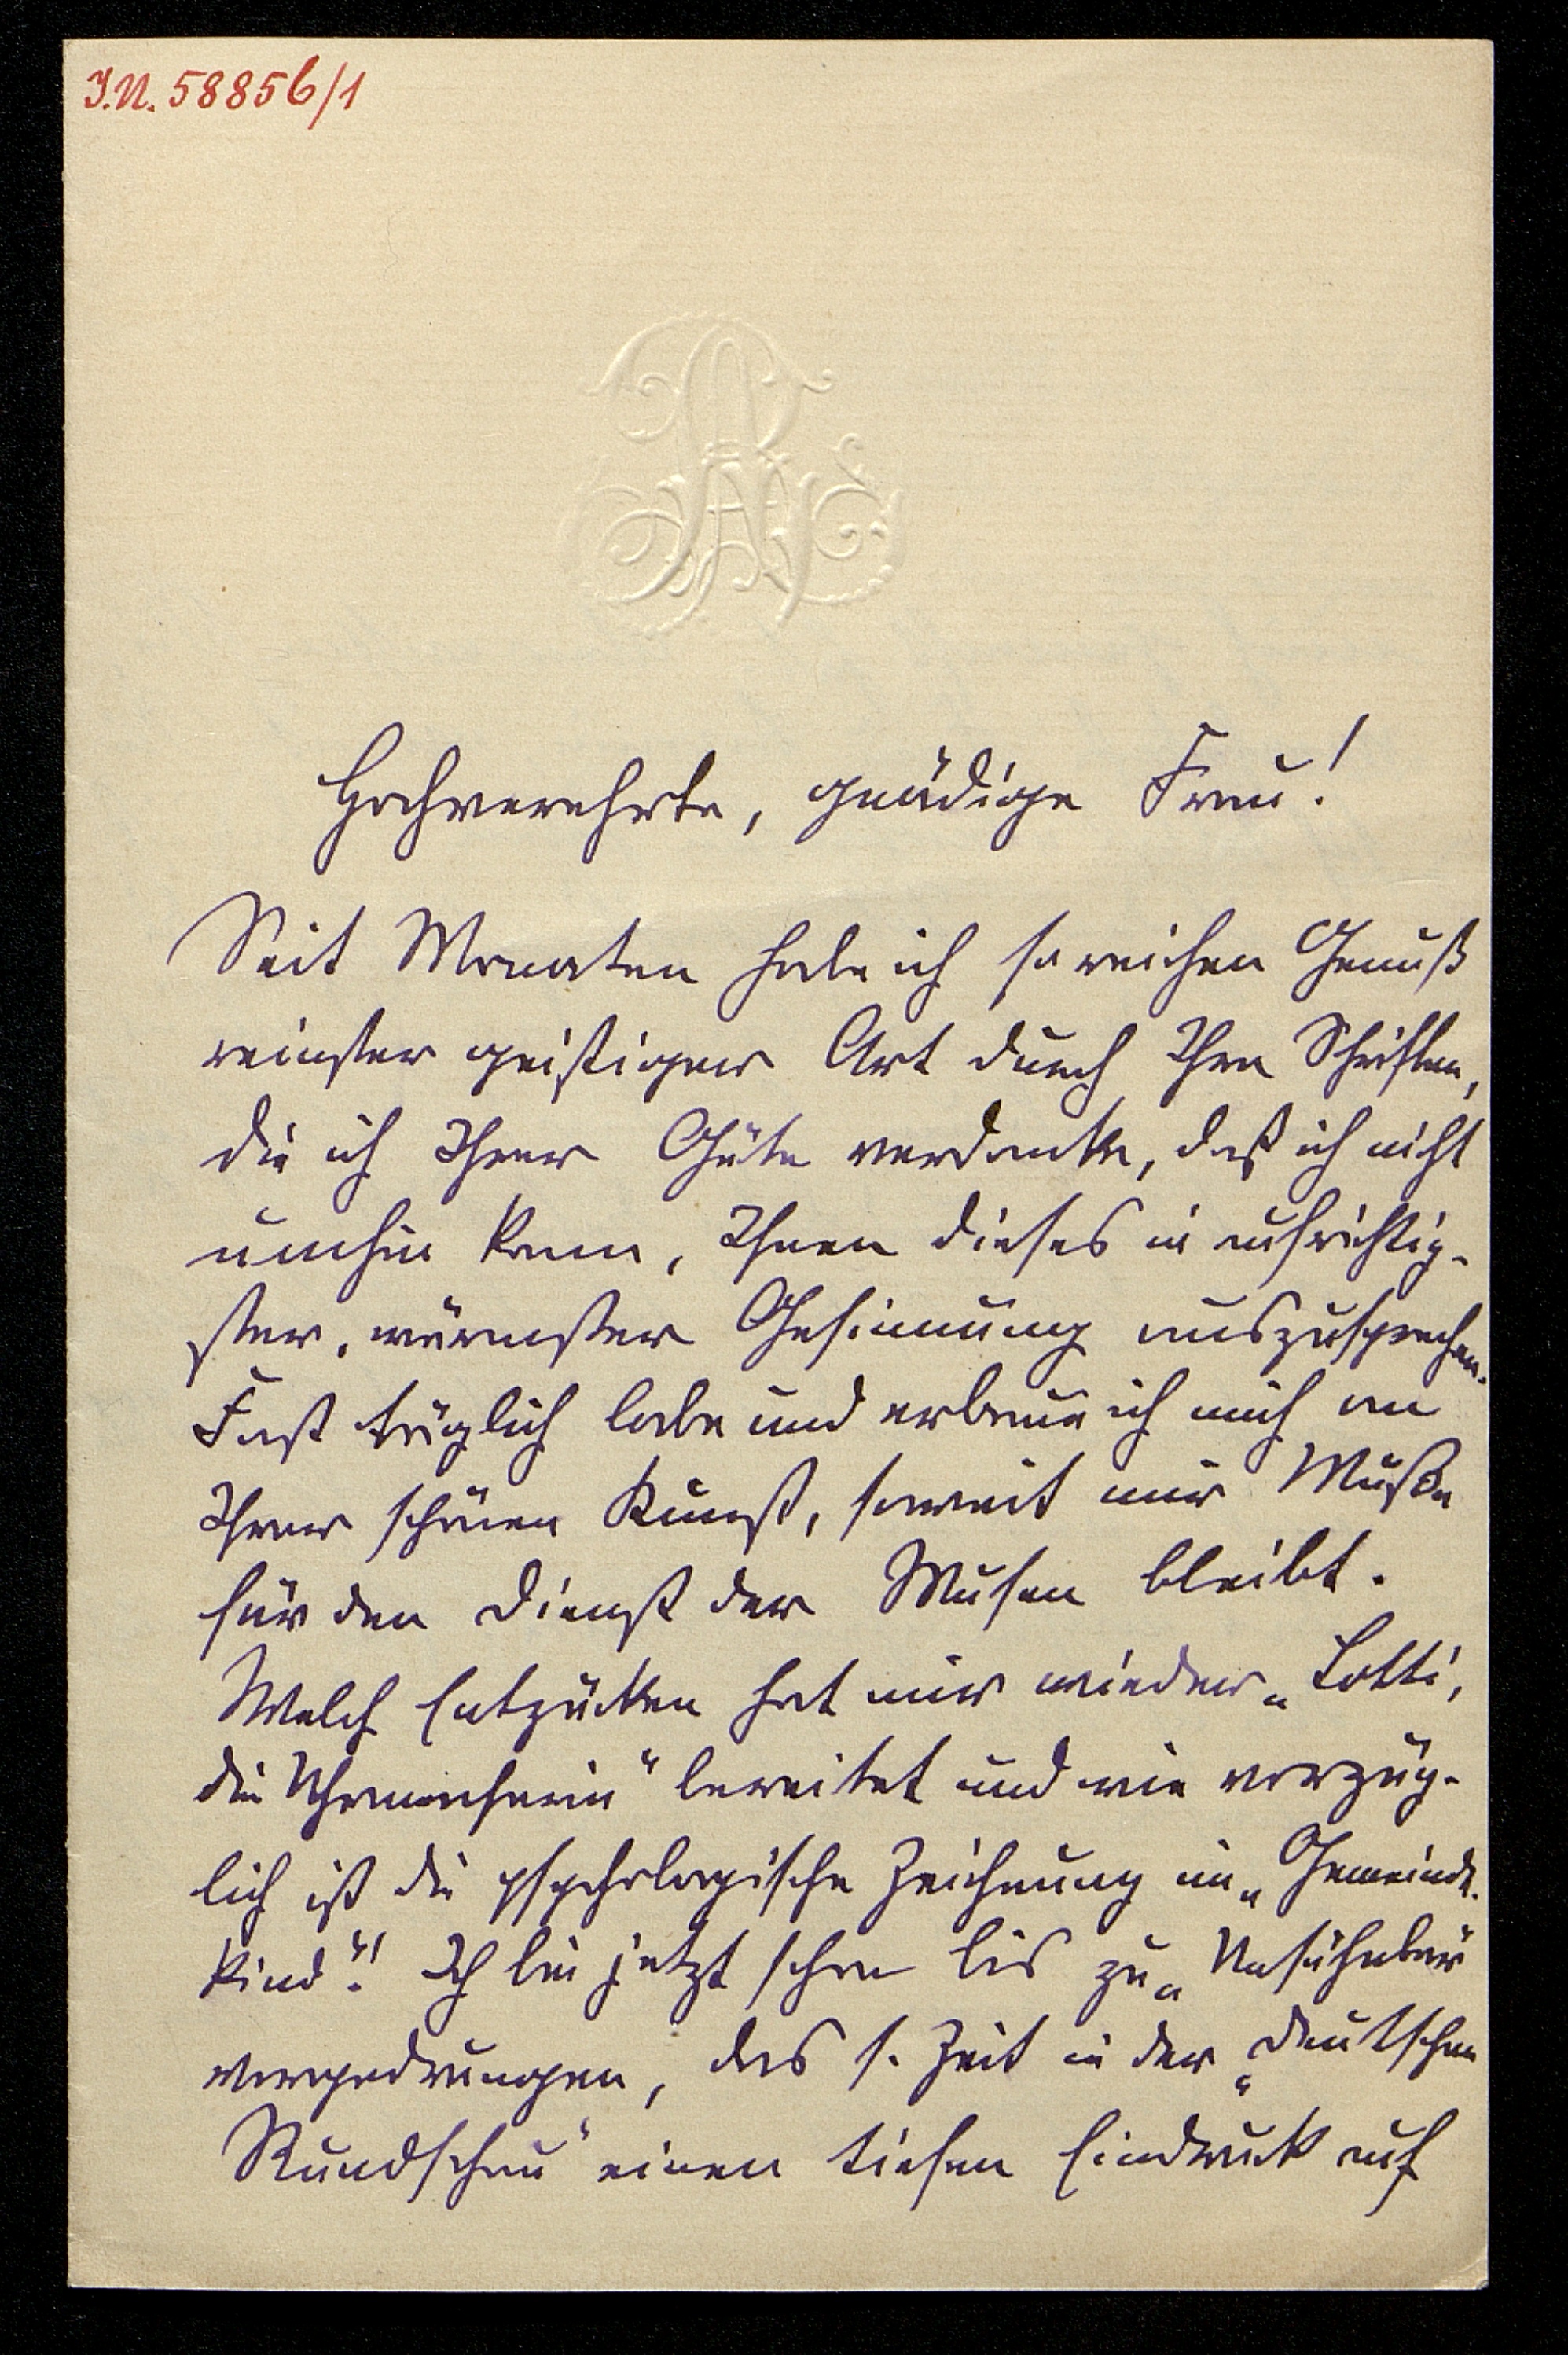 I.N. 58856/1
Hochverehrte, gnädige Frau!
Seit Monaten habe ich so reichen Genuß
reinster geistiger Art durch Ihre Schriften,
die ich Ihrer Güte verdanke, daß ich nicht
umhin kann, Ihnen dieses in aufrichtig-
ster, wärmster Gesinnung auszusprechen.
Fast täglich labe und erbaue ich mich an
Ihrer schönen Kunst, soweit mir Muße
für den Dienst der Musen bleibt.
Welch Entzücken hat mir wieder „Lotti,
die Uhrmacherin" bereitet und wie vorzüg-
lich ist die psychologische Zeichnung im „Gemeinde-
kind"! Ich bin jetzt schon bis zu „Unsühnbar"
vorgedrungen, das s. Zeit in der „Deutschen
Rundschau" einen tiefen Eindruck auf